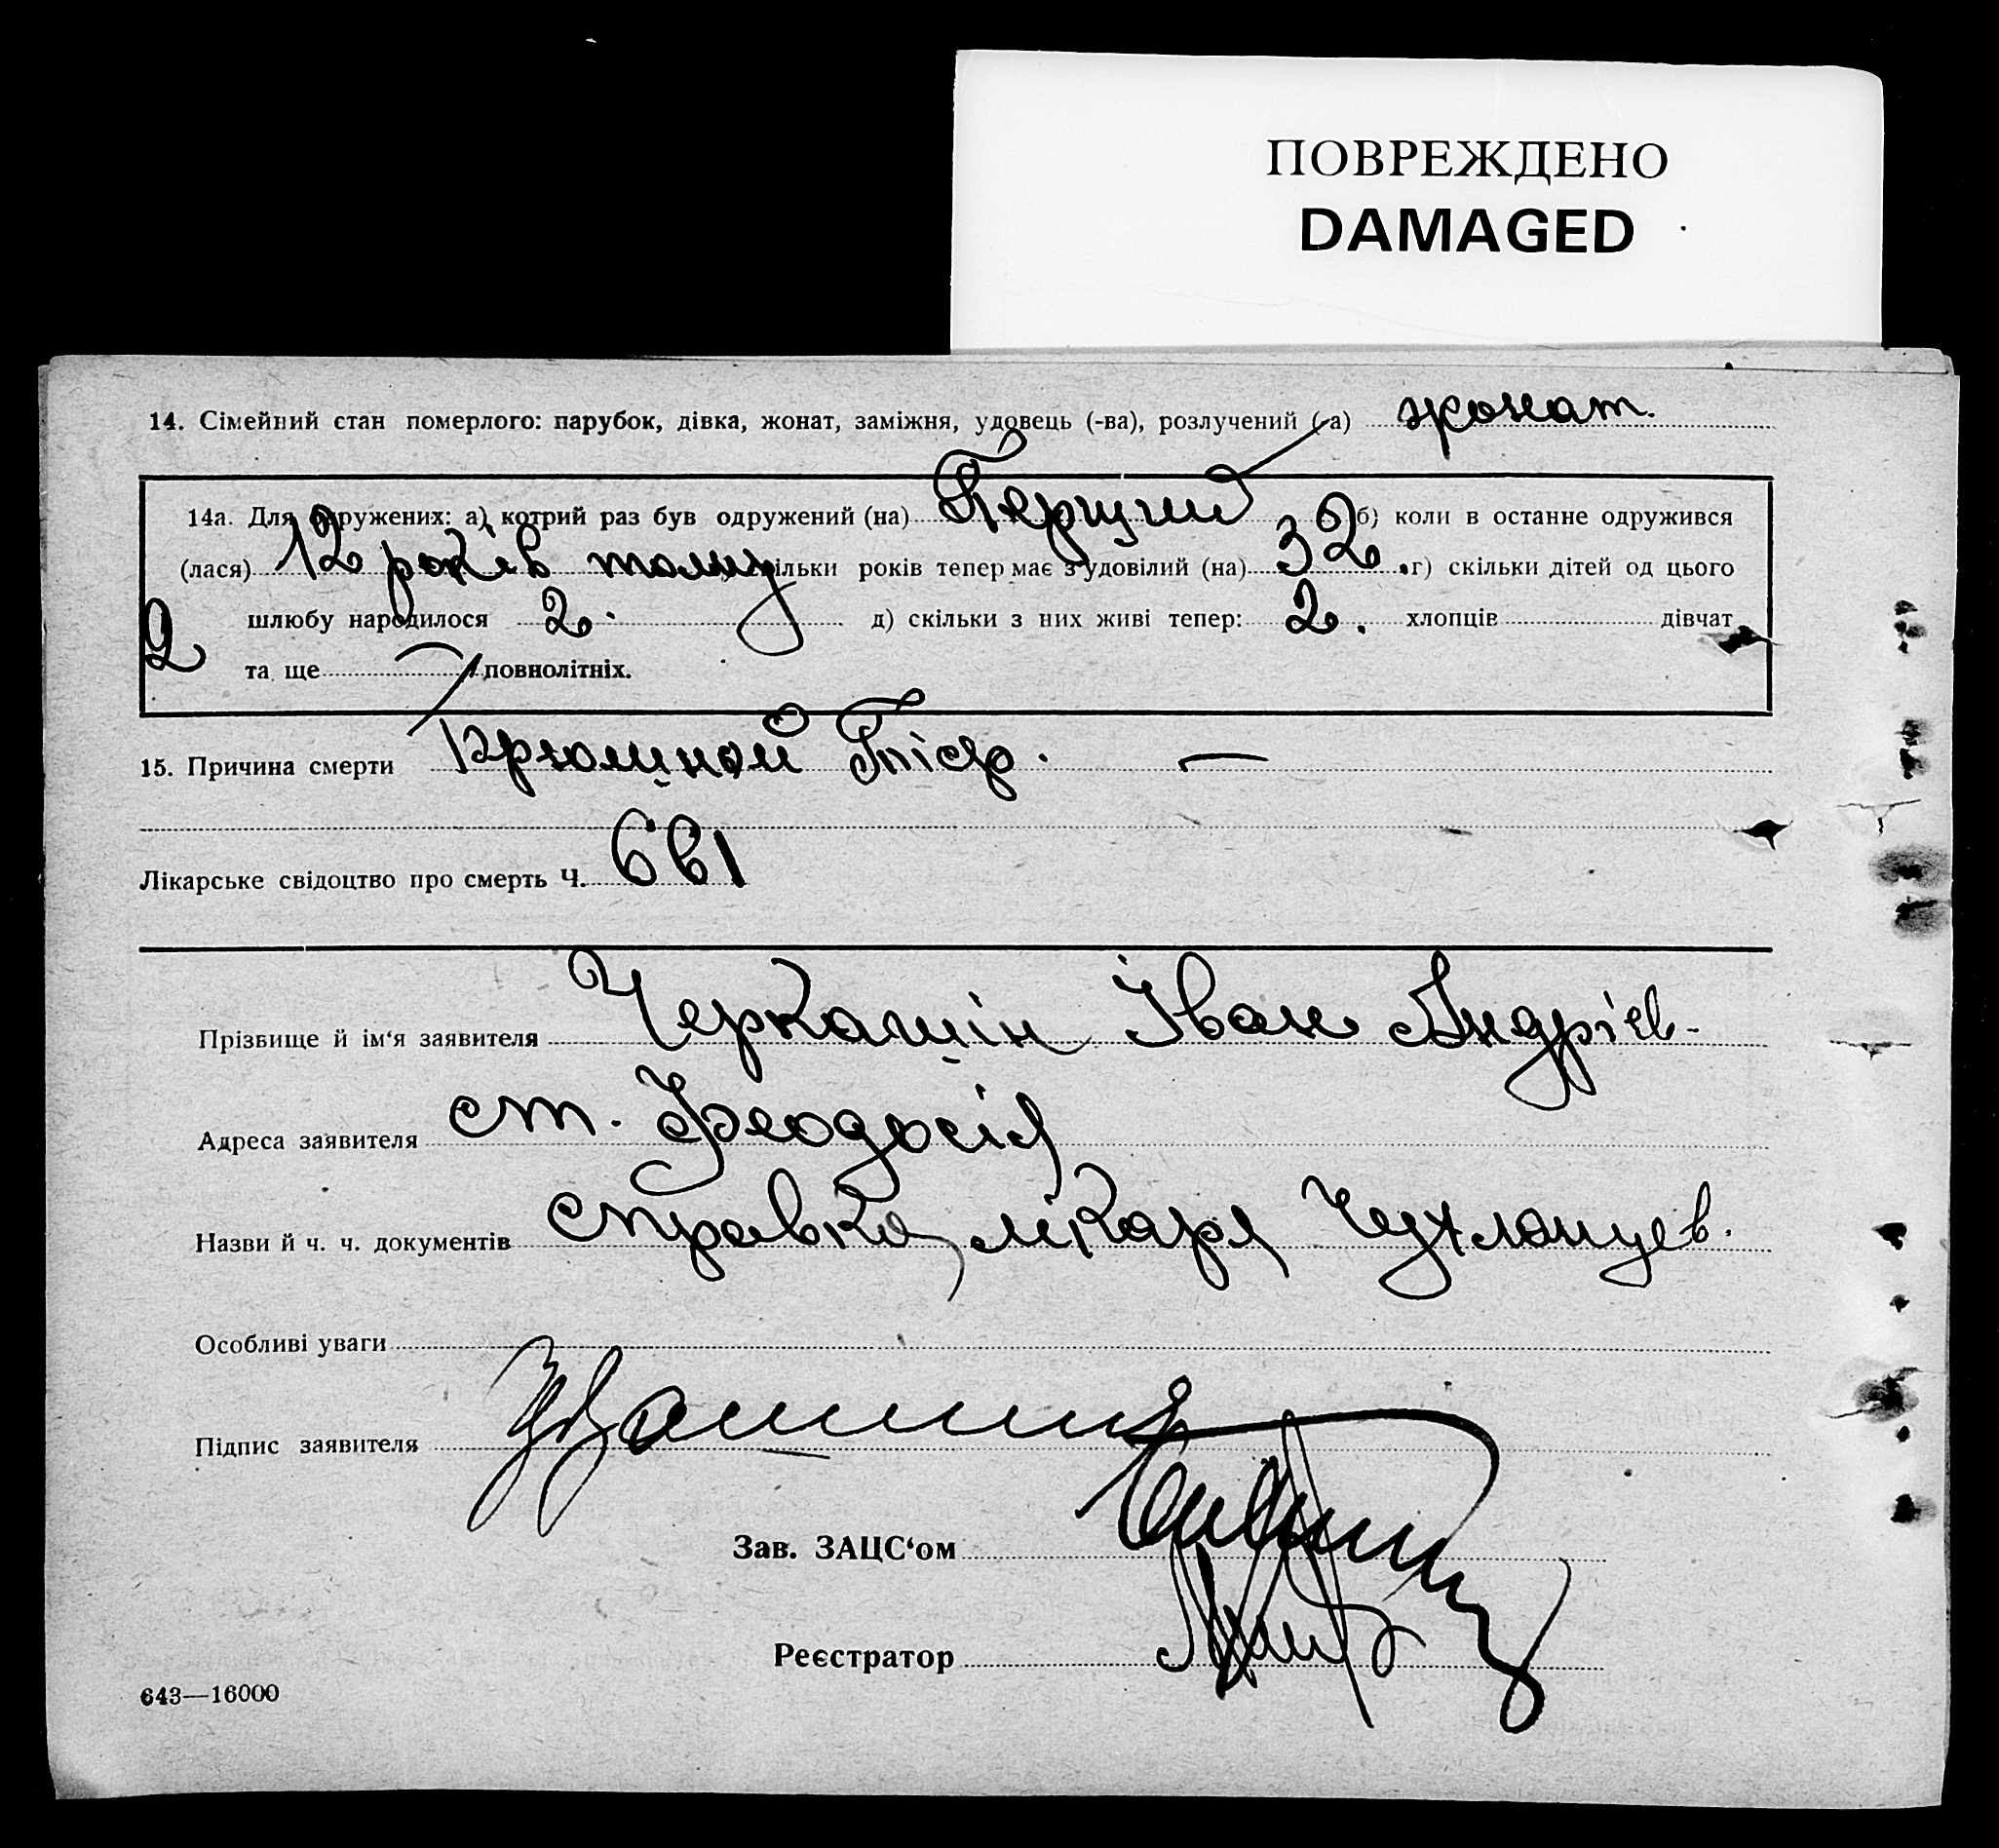 ПОВРЕЖДЕНО
DAMAGED
14. Сімейний стан померлого: парубок, дівка, жонат, заміжня, удовець (-ва), розлучений (-а) жонат.
14а. Для одружених: а) котрий раз був одружений (на) Перший б) коли в останне одружився
(лася) 12 років тому скільки років тепер має з удовілий (на) 32. г) скільки дітей од цього
шлюбу народилося 2. д) скільки з них живі тепер: 2. хлопців дівчат
2 та ще повнолітніх.
15. Причина смерти
Лікарське свідоцтво про смерть Ч. 661
Прізвище й ім'я заявителя Черкашін Іван Андрієв-
Адреса заявителя ст. Феодосія
Назви й ч. ч. документів справка лікаря
Особливі уваги
Підпис заявителя
Зав. ЗАЦС'ом
Реєстратор
643—16000